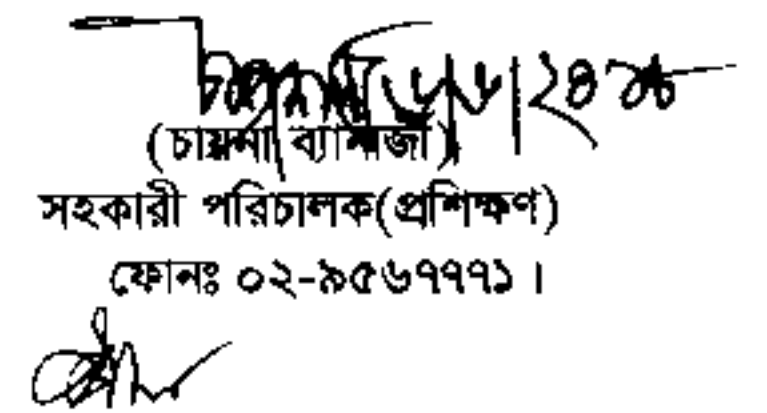 (চায়না ব্যানার্জী)
সহকারী পরিচালক(প্রশিক্ষণ)
ফোনঃ ০২-৯৫৬৭৭৭১ ।